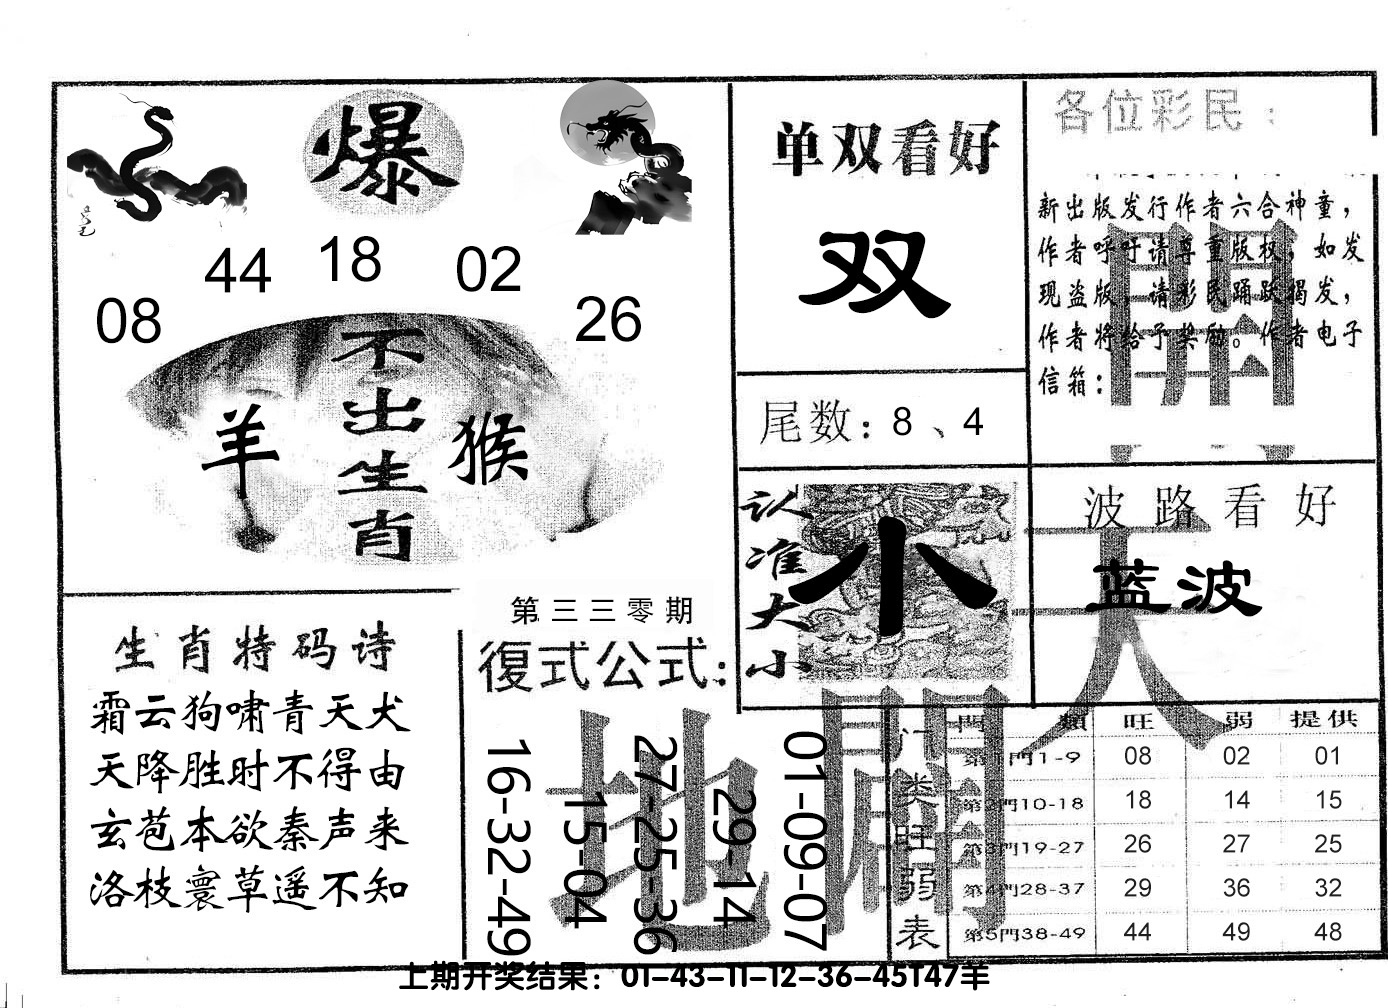 爆
44 18 02
08 26
不出生肖
羊 猴
单双看好
双
尾数：8、4
各位彩民：
新出版发行作者六合神童，
作者呼吁请尊重版权，如发
现盗版，请彩民踊跃揭发，
作者将给予奖励。作者电子
信箱：
認准大小
小
波路看好
蓝波
天
開
生肖特码诗
霜云狗啸青天犬
天降胜时不得由
玄苞本欲秦声来
洛枝寰草遥不知
第三三零期
復式公式：
地開
16-32-49
15-04
27-25-36
29-14
01-09-07
门类旺弱表
門類 旺 弱 提供
第1門1-9 08 02 01
第2門10-18 18 14 15
第3門19-27 26 27 25
第4門28-37 29 36 32
第5門38-49 44 49 48
上期开奖结果：01-43-11-12-36-45T47羊